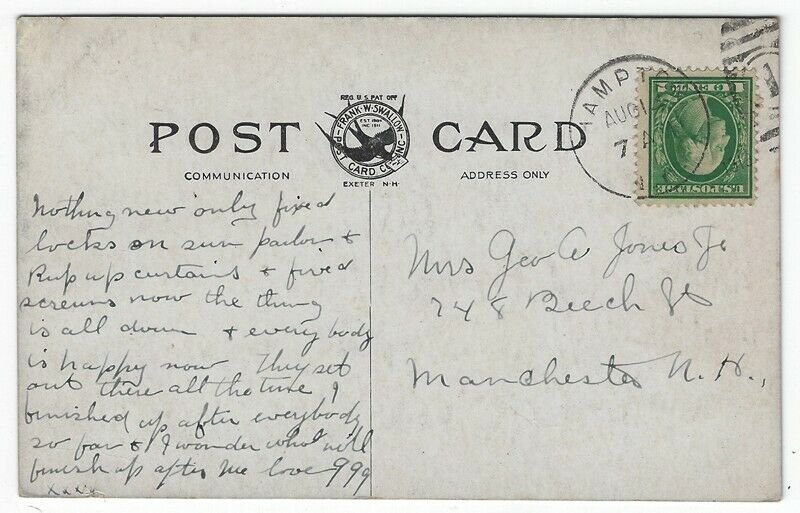 REG. U.S. PAT. OFF.
FRANK·W·SWALLOW
EST 1884
INC 1911
POST CARD CO. INC.
EXETER N·H·
POST CARD
COMMUNICATION
ADDRESS ONLY
HAMPTO
AUG 1
7 A
U.S. POSTAGE
Nothing new only fixed
locks on sun parlor &
up curtains & fixed
screens now the thing
is all down & everybody
is happy now They set
out there all the time I
finished up after everybody
so far & I wonder who will
finish up after me love
xxxx
Mrs Geo A Jones Jr
748 Beech St
Manchester N.H.,